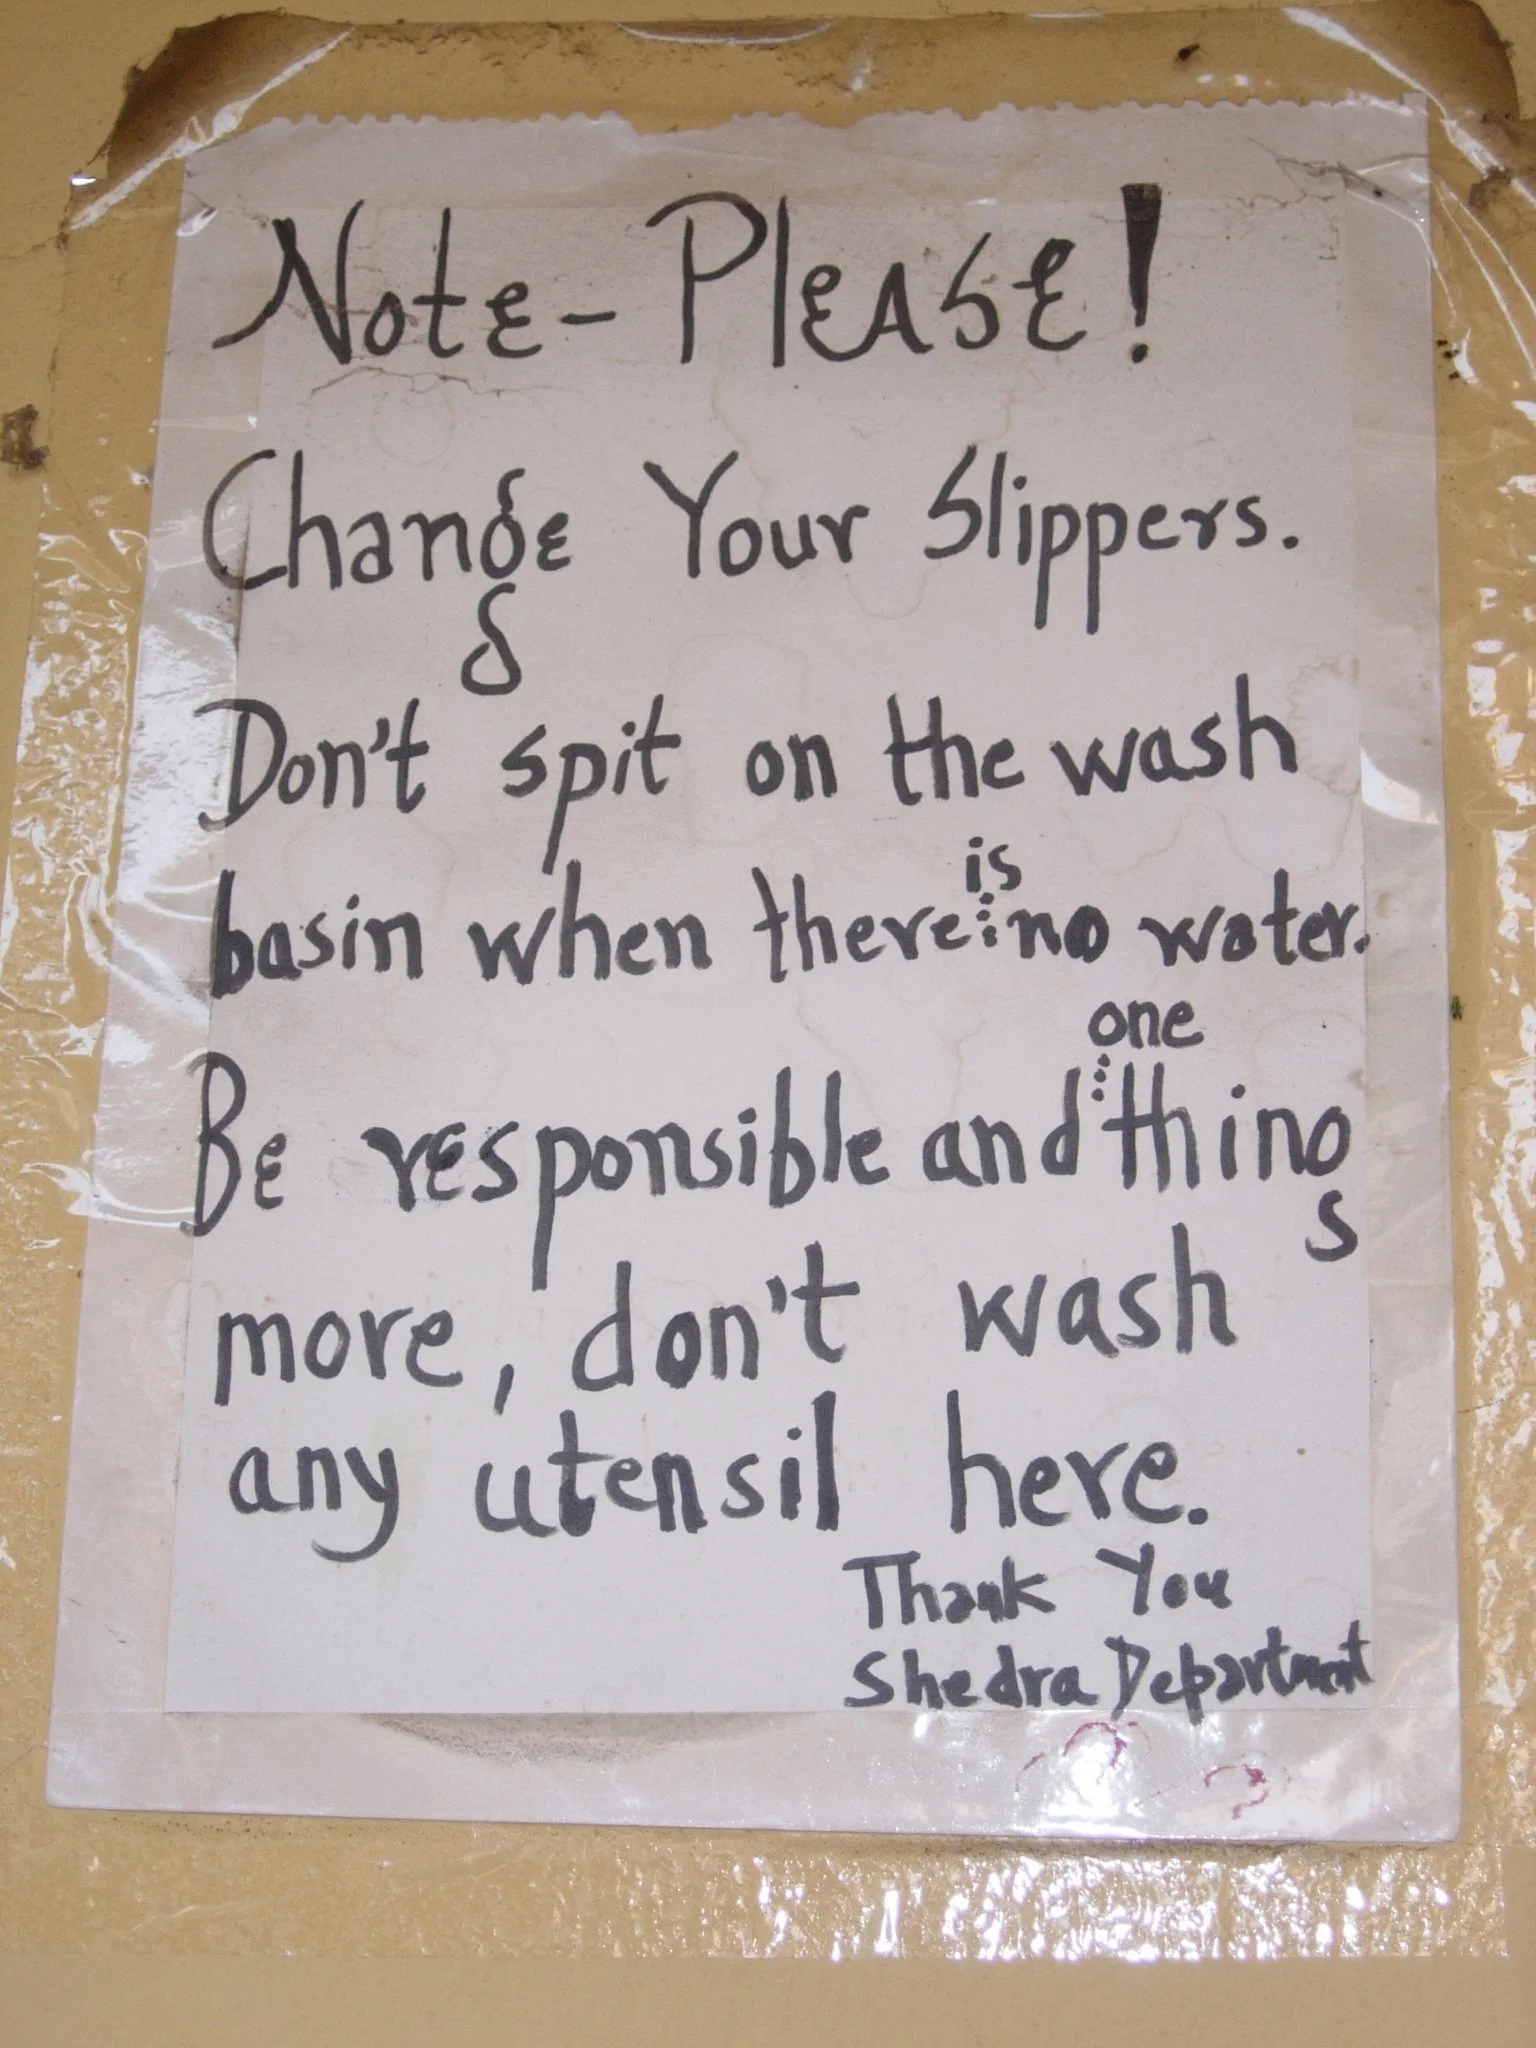 Note - PlEASE!
Change Your Slippers.
Don't spit on the wash
basin when there is no water.
Be responsible and one thing
more, don't wash
any utensil here.
Thank You
Shedra Department